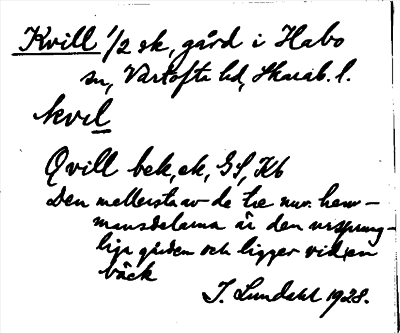 Kvill 1/2 sk, gård i Habo
sn, Vartofta hd, Skarab. l.
kvil
Qvill bek, ek, GS, Kb
Den mellersta av de tre nuv. hem-
mansdelarna är den ursprung-
liga gården och ligger vid en
bäck
J. Lundahl 1928.